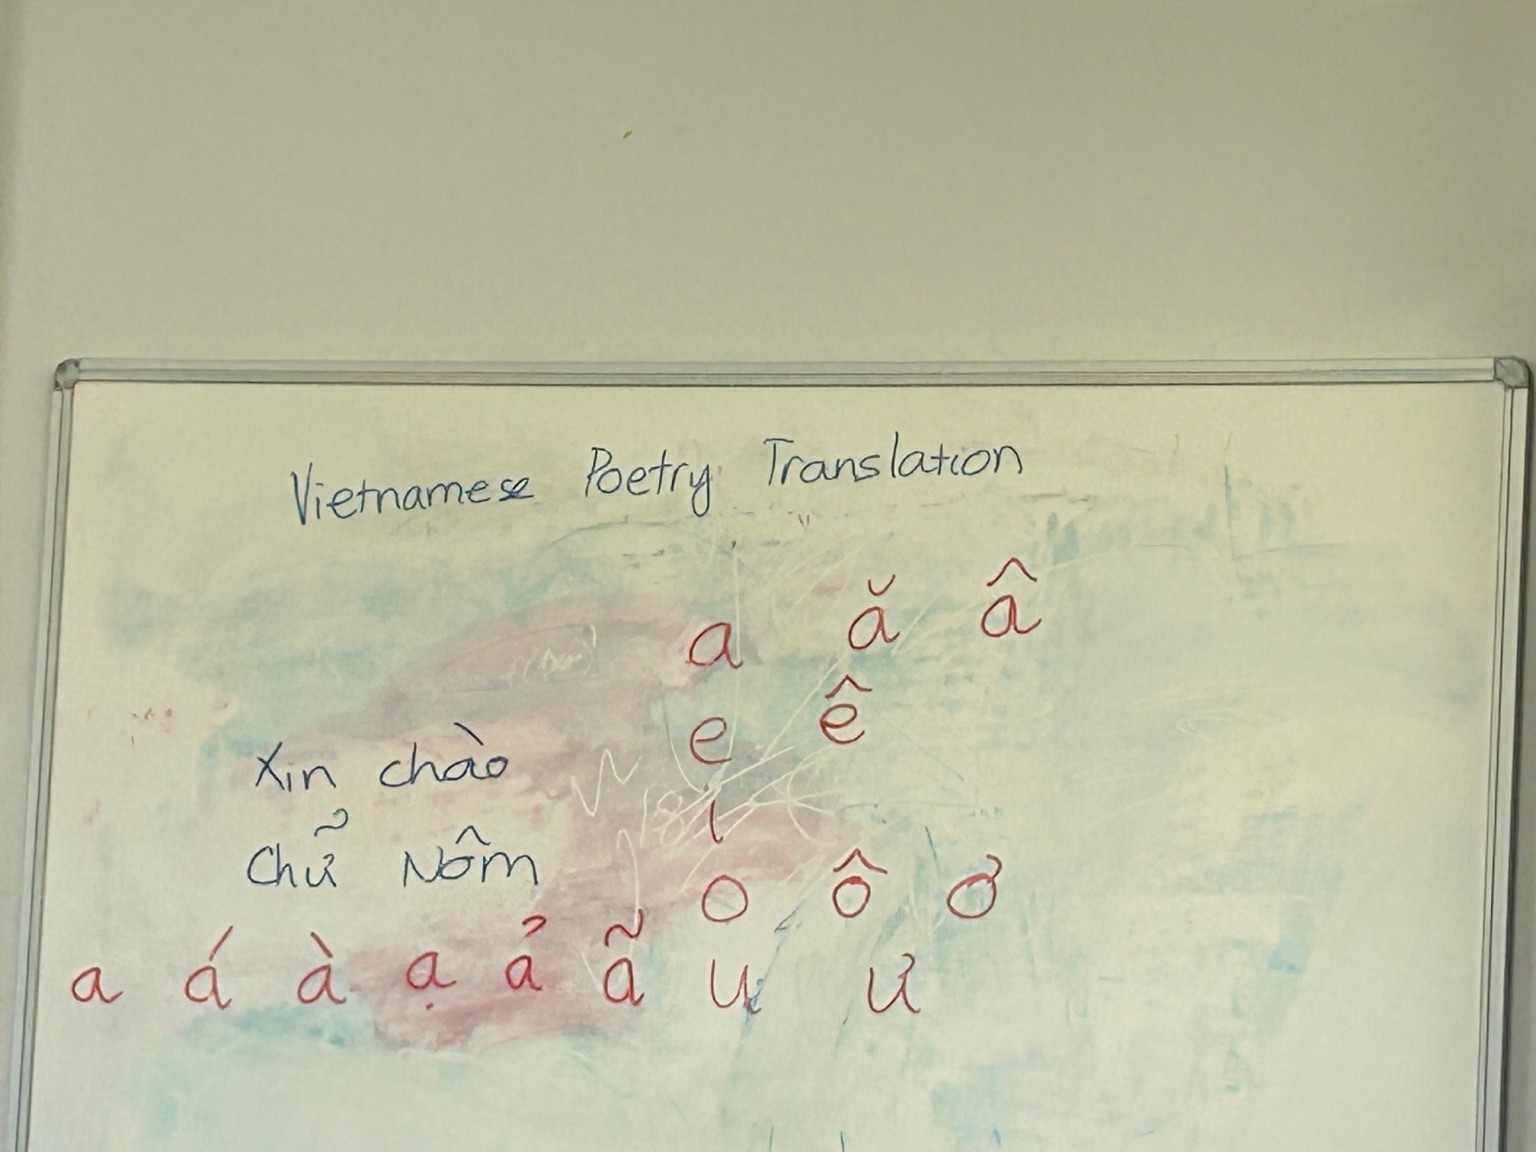 Vietnamese Poetry Translation
a ă â
e ê
Xin chào
i
Chữ Nôm
o ô ơ
a á à ạ ả ã
u ư